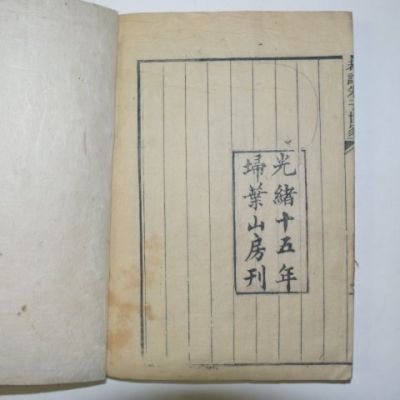 光緒十五年
埽葉山房刊